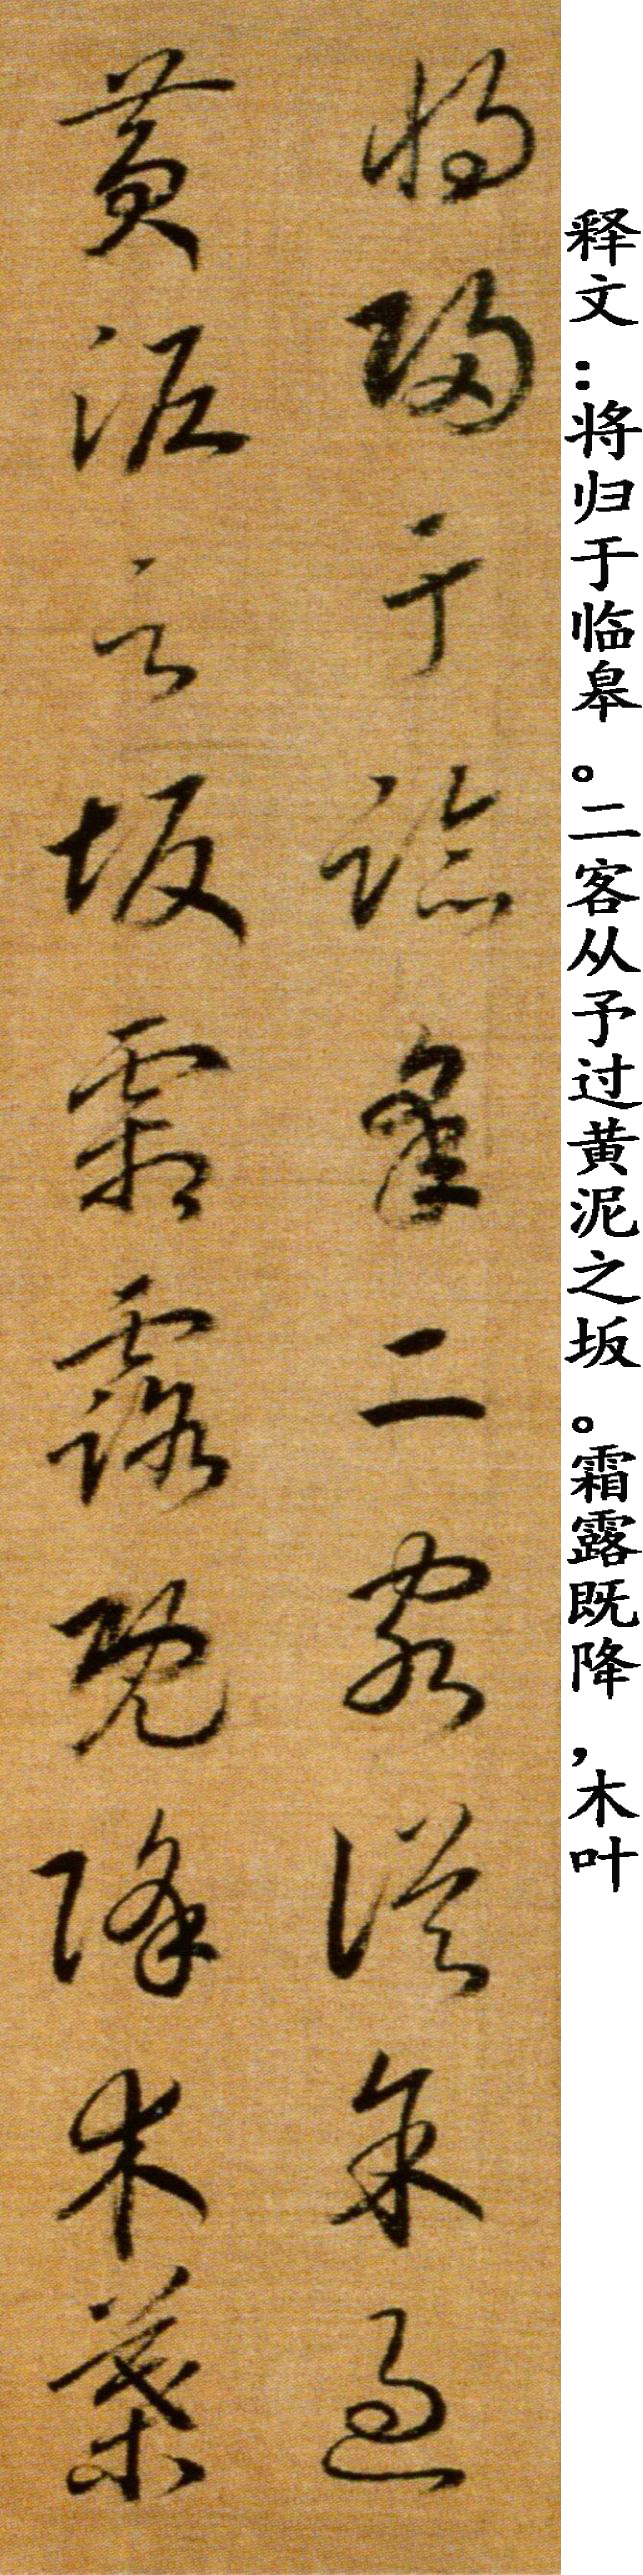 释文：将归于临皋。二客从予过黄泥之坂。霜露既降，木叶
将歸于臨皋二客從余過
黄泥之坂霜露既降木葉